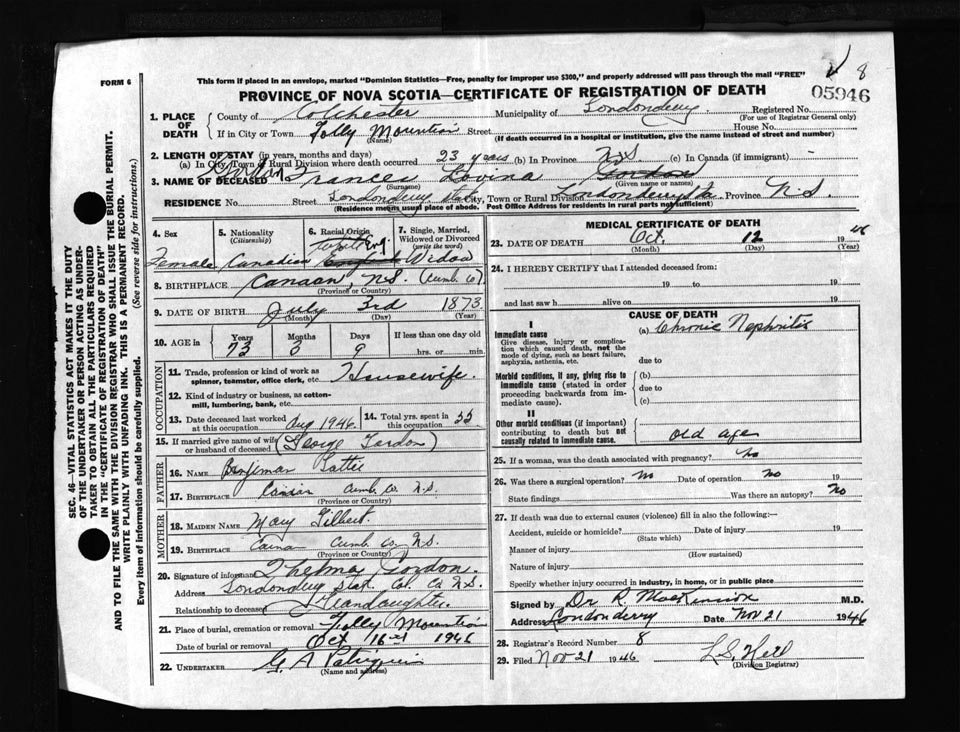 FORM 6
This form if placed in an envelope, marked "Dominion Statistics—Free, penalty for improper use $300," and properly addressed will pass through the mail "FREE"
8
PROVINCE OF NOVA SCOTIA—CERTIFICATE OF REGISTRATION OF DEATH
05946
1. PLACE OF DEATH
County of Colchester Municipality of Londonderry Registered No.
(For use of Registrar General only)
If in City or Town Folly Mountain Street House No.
(Name) (If death occurred in a hospital or institution, give the name instead of street and number)
2. LENGTH OF STAY (in years, months and days)
(a) In City, Town or Rural Division where death occurred 23 years (b) In Province N S (c) In Canada (if immigrant)
3. NAME OF DECEASED Gordon Frances Lovina Gordon
(Surname) (Given name or names)
RESIDENCE No. Street Londonderry Sta City, Town or Rural Division Londonderry Sta Province N.S.
(Residence means usual place of abode. Post Office Address for residents in rural parts not sufficient)
4. Sex
Female
5. Nationality
(Citizenship)
Canadian
6. Racial Origin
White Eng
English
7. Single, Married, Widowed or Divorced
(write the word)
Widow
8. BIRTHPLACE Canaan, N.S. (Cumb. Co)
(Province or Country)
9. DATE OF BIRTH July 3rd 1873
(Month) (Day) (Year)
10. AGE in Years Months Days If less than one day old
73 3 9 hrs. or min.
OCCUPATION
11. Trade, profession or kind of work as spinner, teamster, office clerk, etc. Housewife.
12. Kind of industry or business, as cotton-mill, lumbering, bank, etc.
13. Date deceased last worked at this occupation Aug 1946
14. Total yrs. spent in this occupation 55
15. If married give name of wife or husband of deceased (George Gordon)
FATHER
16. NAME Benjiman
17. BIRTHPLACE Cumb. Co. N.S.
(Province or Country)
MOTHER
18. MAIDEN NAME Mary Gilbert.
19. BIRTHPLACE Cumb Co N.S.
(Province or Country)
20. Signature of informant Thelma Gordon.
Address Londonderry Stat. Col. Co N.S.
Relationship to deceased Grandaughter.
21. Place of burial, cremation or removal Folly Mountain
Date of burial or removal Oct 16 1946
22. UNDERTAKER G. A.
(Name and address)
MEDICAL CERTIFICATE OF DEATH
23. DATE OF DEATH Oct. 12 19 46
(Month) (Day) (Year)
24. I HEREBY CERTIFY that I attended deceased from:
19 to 19
and last saw h alive on 19
CAUSE OF DEATH
I
Immediate cause
Give disease, injury or complication which caused death, not the mode of dying, such as heart failure, asphyxia, asthenia, etc.
(a) Chronic Nephritis
due to
Morbid conditions, if any, giving rise to immediate cause (stated in order proceeding backwards from immediate cause).
(b)
due to
(c)
II
Other morbid conditions (if important) contributing to death but not causally related to immediate cause.
old age
25. If a woman, was the death associated with pregnancy? No
26. Was there a surgical operation? No Date of operation No 19
State findings Was there an autopsy? No
27. If death was due to external causes (violence) fill in also the following:—
Accident, suicide or homicide? Date of injury 19
(State which)
Manner of injury
(How sustained)
Nature of injury
Specify whether injury occurred in industry, in home, or in public place
Signed by Dr R. M.D.
Address Londonderry Date Nov 21 1946
28. Registrar's Record Number 8
29. Filed Nov 21 1946
(Division Registrar)
SEC. 46—VITAL STATISTICS ACT MAKES IT THE DUTY
OF THE UNDERTAKER OR PERSON ACTING AS UNDER-
TAKER TO OBTAIN ALL THE PARTICULARS REQUIRED
IN THE "CERTIFICATE OF REGISTRATION OF DEATH"
AND TO FILE THE SAME WITH THE DIVISION REGISTRAR WHO SHALL ISSUE THE BURIAL PERMIT.
WRITE PLAINLY WITH UNFADING INK. THIS IS A PERMANENT RECORD.
Every item of information should be carefully supplied. (See reverse side for instructions.)